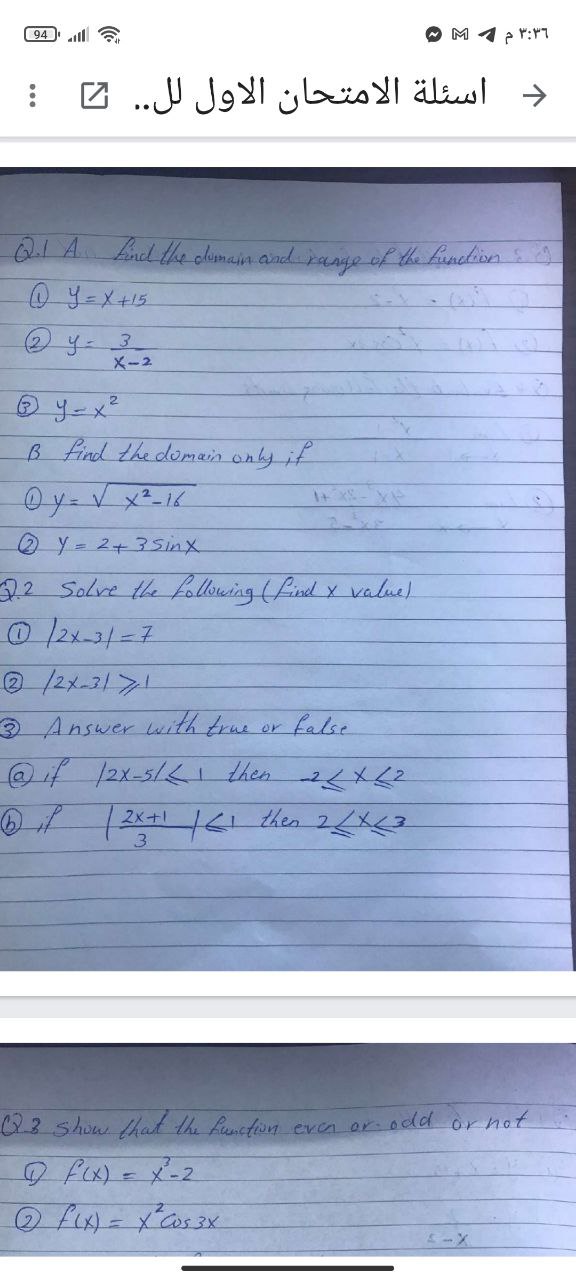 94
٣:٣٦ م
اسئلة الامتحان الاول لل..
Q.1 A find the domain and range of the function
① y = x+15
② y = 3/(x-2)
③ y = x²
B find the domain only if
① y = √(x²-16)
② y = 2+3 sinx
Q.2 Solve the following (find x value)
① |2x-3| = 7
② |2x-3| ⩾ 1
③ Answer with true or false
ⓐ if |2x-5| ⩽ 1 then -2 ⩽ x ⩽ 2
ⓑ if |(2x+1)/3| ⩽ 1 then 2 ⩽ x ⩽ 3
Q.3 show that the function even or odd or not
① f(x) = x³-2
② f(x) = x² Cos 3x